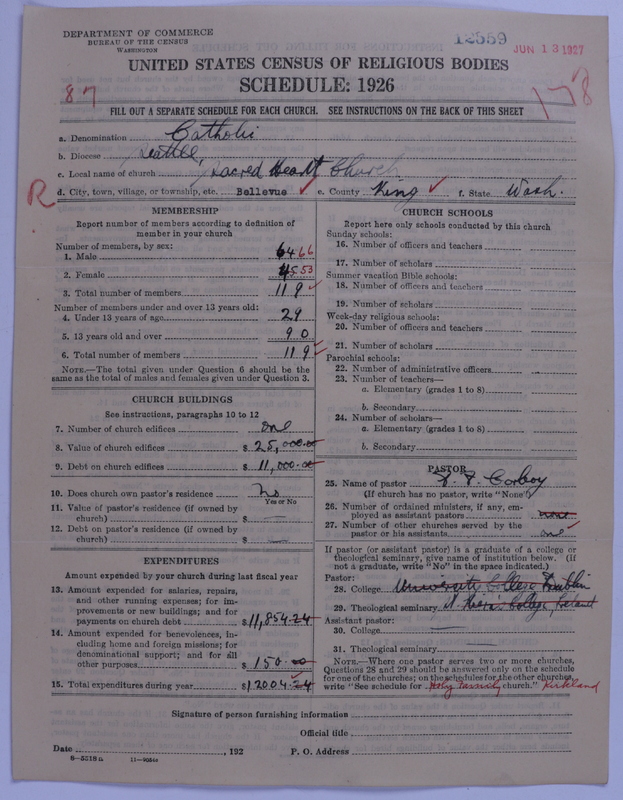 DEPARTMENT OF COMMERCE
BUREAU OF THE CENSUS
WASHINGTON
12559
JUN 13 1927
UNITED STATES CENSUS OF RELIGIOUS BODIES
SCHEDULE: 1926
87
178
FILL OUT A SEPARATE SCHEDULE FOR EACH CHURCH. SEE INSTRUCTIONS ON THE BACK OF THIS SHEET
a. Denomination Catholic
b. Diocese Seattle,
c. Local name of church Sacred Heart Church
R
d. City, town, village, or township, etc. Bellevue e. County King f. State Wash.
MEMBERSHIP
Report number of members according to definition of
member in your church
Number of members, by sex:
1. Male 64 66
2. Female 55 53
3. Total number of members 119
Number of members under and over 13 years old:
4. Under 13 years of age 29
5. 13 years old and over 90
6. Total number of members 119
NOTE.—The total given under Question 6 should be the
same as the total of males and females given under Question 3.
CHURCH BUILDINGS
See instructions, paragraphs 10 to 12
7. Number of church edifices one
8. Value of church edifices $ 25,000.00
9. Debt on church edifices $ 11,000.00
10. Does church own pastor's residence No
Yes or No
11. Value of pastor's residence (if owned by
church) $
12. Debt on pastor's residence (if owned by
church) $
EXPENDITURES
Amount expended by your church during last fiscal year
13. Amount expended for salaries, repairs,
and other running expenses; for im-
provements or new buildings; and for
payments on church debt $11,854.24
14. Amount expended for benevolences, in-
cluding home and foreign missions; for
denominational support; and for all
other purposes $ 150.00
15. Total expenditures during year $12004.24
CHURCH SCHOOLS
Report here only schools conducted by this church
Sunday schools:
16. Number of officers and teachers
17. Number of scholars
Summer vacation Bible schools:
18. Number of officers and teachers
19. Number of scholars
Week-day religious schools:
20. Number of officers and teachers
21. Number of scholars
Parochial schools:
22. Number of administrative officers
23. Number of teachers—
a. Elementary (grades 1 to 8)
b. Secondary
24. Number of scholars—
a. Elementary (grades 1 to 8)
b. Secondary
PASTOR
25. Name of pastor Corboy
(If church has no pastor, write "None")
26. Number of ordained ministers, if any, em-
ployed as assistant pastors none
27. Number of other churches served by the
pastor or his assistants one
If pastor (or assistant pastor) is a graduate of a college or
theological seminary, give name of institution below. (If
not a graduate, write "No" in the space indicated.)
Pastor:
28. College University College Dublin
29. Theological seminary College, Ireland
Assistant pastor:
30. College
31. Theological seminary
NOTE.—Where one pastor serves two or more churches,
Questions 28 and 29 should be answered only on the schedule
for one of the churches; on the schedules for the other churches,
write "See schedule for Holy Family church." Kirkland
Signature of person furnishing information
Official title
Date , 192 P. O. Address